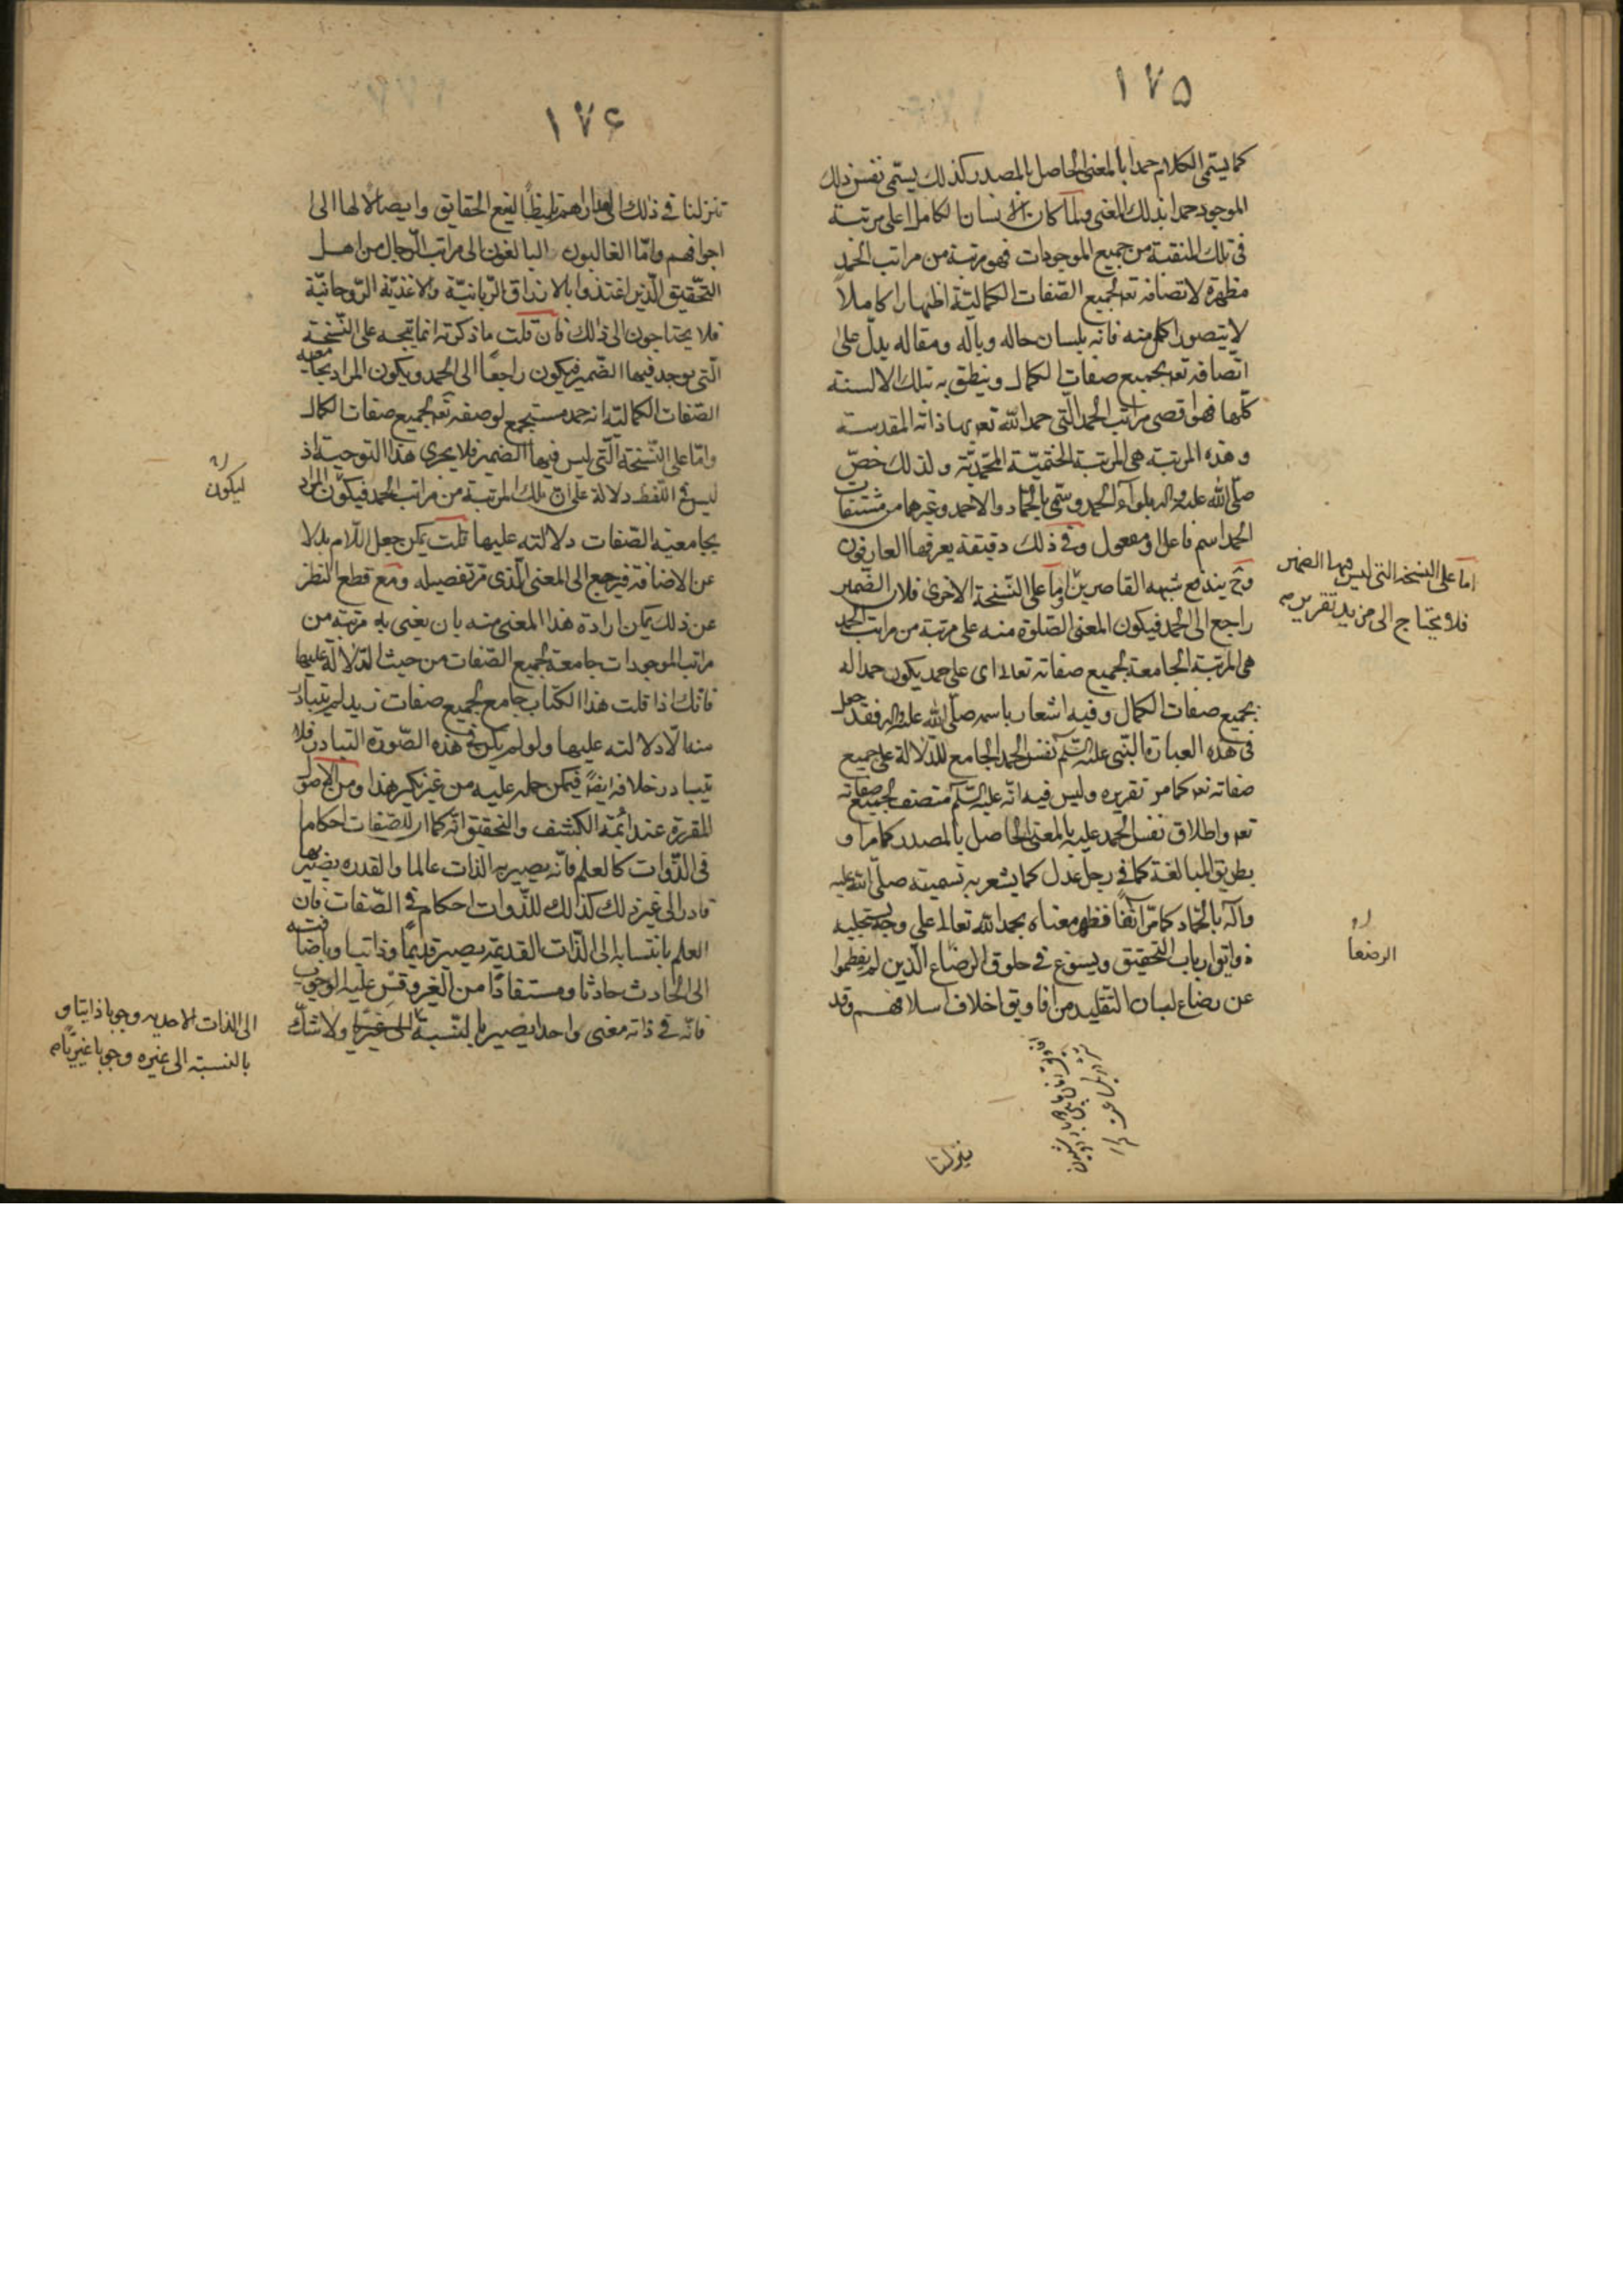 ١٧۵
كما يسمى الكلام حمدا بالمعنى الحاصل بالمصدر كذلك يسمى نفس ذلك
الموجود حمدا بذلك المعنى ولما كان الانسان الكامل اعلى مرتبة
فى تلك المنقبة من جميع الموجودات فهو مرتبة من مراتب الحمد
مظهرة لاتصافه تعہ بجميع الصفات الكمالية اظهارا كاملا
لا يتصور اكمل منه فانه بلسان حاله وباله ومقاله يدل على
اتصافه تعہ بجميع صفات الكمال وينطق به بتلك الالسنة
كلها فهو اقصى مراتب الحمد التى حمد الله تعہ بها ذاته المقدسة
وهذه المرتبة هى المرتبة الختمية المحمدية ولذلك خص
صلى الله عليه واله بلواء الحمد وسمى بالحماد والاحمد وغيرهما من مشتقات
الحمد اسم فاعل او مفعول وفى ذلك دقيقة يعرفها العارفون
وح يندفع شبهه القاصرين واما على النسخة الاخرى فلان الضمير
راجع الى الحمد فيكون المعنى الصلوة منه على مرتبة من مراتب الحمد
هى المرتبة الجامعة لجميع صفاته تعالى اى على حمد يكون حمدا له
بجميع صفات الكمال وفيه اشعار باسمه صلى الله عليه واله فقد جعل
فى هذه العبارة النبى عليه السلم نفس الحمد الجامع للدلالة على جميع
صفاته تعہ كما مر تقريره وليس فيه انه عليه السلم متصف بجميع صفاته
تعہ واطلاق نفس الحمد عليه بالمعنى الحاصل بالمصدر كما مر او
بطريق المبالغة كما فى رجل عدل كما يشعر به تسميته صلى الله عليه
وآله بالحماد كما مر آنفا فظهر معناه بحمد الله تعالى على وجه يستجليه
ذوائق ارباب التحقيق ويسوغ فى حلوق الرضاع الذين لم يفطموا
عن رضاع لبان التقليد من افاويق اخلاف اسلافهم وقد
اما على النسخة التى ليس فيها الضمير
فلا يحتاج الى مزيد تقرير صح
الرضعا
تنزلنا
١٧۶
تنزلنا فى ذلك الى مدارهم لفظا لفيع الحقايق وايصالا لها الى
اجوافهم واما الغالبون البالغون الى مراتب الرجال من اهل
التحقيق الذين اغتذوا بالارزاق الربانية والاغذية الروحانية
فلا يحتاجون الى ذلك فان قلت ما ذكرته انما يتجه على النسخة
التى يوجد فيها الضمير فيكون راجعا الى الحمد ويكون المراد بجامعيه
الصفات الكمالية انه حمد مستجمع لوصفه تعہ بجميع صفات الكمال
واما على النسخة التى ليس فيها الضمير فلا يجرى هذا التوجيه اذ
ليس فى اللفظ دلالة على ان تلك المرتبة من مراتب الحمد فيكون المراد
بجامعيه الصفات دلالته عليها قلت يمكن جعل اللام بدلا
عن الاضافة فيرجع الى المعنى الذى مر تفصيله ومع قطع النظر
عن ذلك يمكن ارادة هذا المعنى منه بان يعنى به مرتبة من
مراتب الموجودات جامعة لجميع الصفات من حيث الدلالة عليها
فانك اذا قلت هذا الكتاب جامع لجميع صفات زيد لم يتبادر
منه الا دلالته عليها ولو لم يكن فى هذه الصورة التبادر فلا
يتبادر خلافه ايضا فيمكن حمله عليه من غير نكير هذا ومن الاصول
المقررة عند ائمة الكشف والتحقيق انه كما ان للصفات احكاما
فى الذوات كالعلم فانه يصير به الذات عالما والقدرة يصير بها
قادرا الى غير ذلك كذلك للذوات احكام فى الصفات فان
العلم بانتسابه الى الذات القديمة يصير قديما وذاتيا وباضافته
الى الحادث حادثا ومستفادا من الغير وقس عليه الوجوب
فانه فى ذاته معنى واحد يصير بالنسبة الى غيرها ولا شك
ليكون
الى الذات الاحديه وجوبا ذاتيا و
بالنسبة الى غيره وجوبا غيريا صح